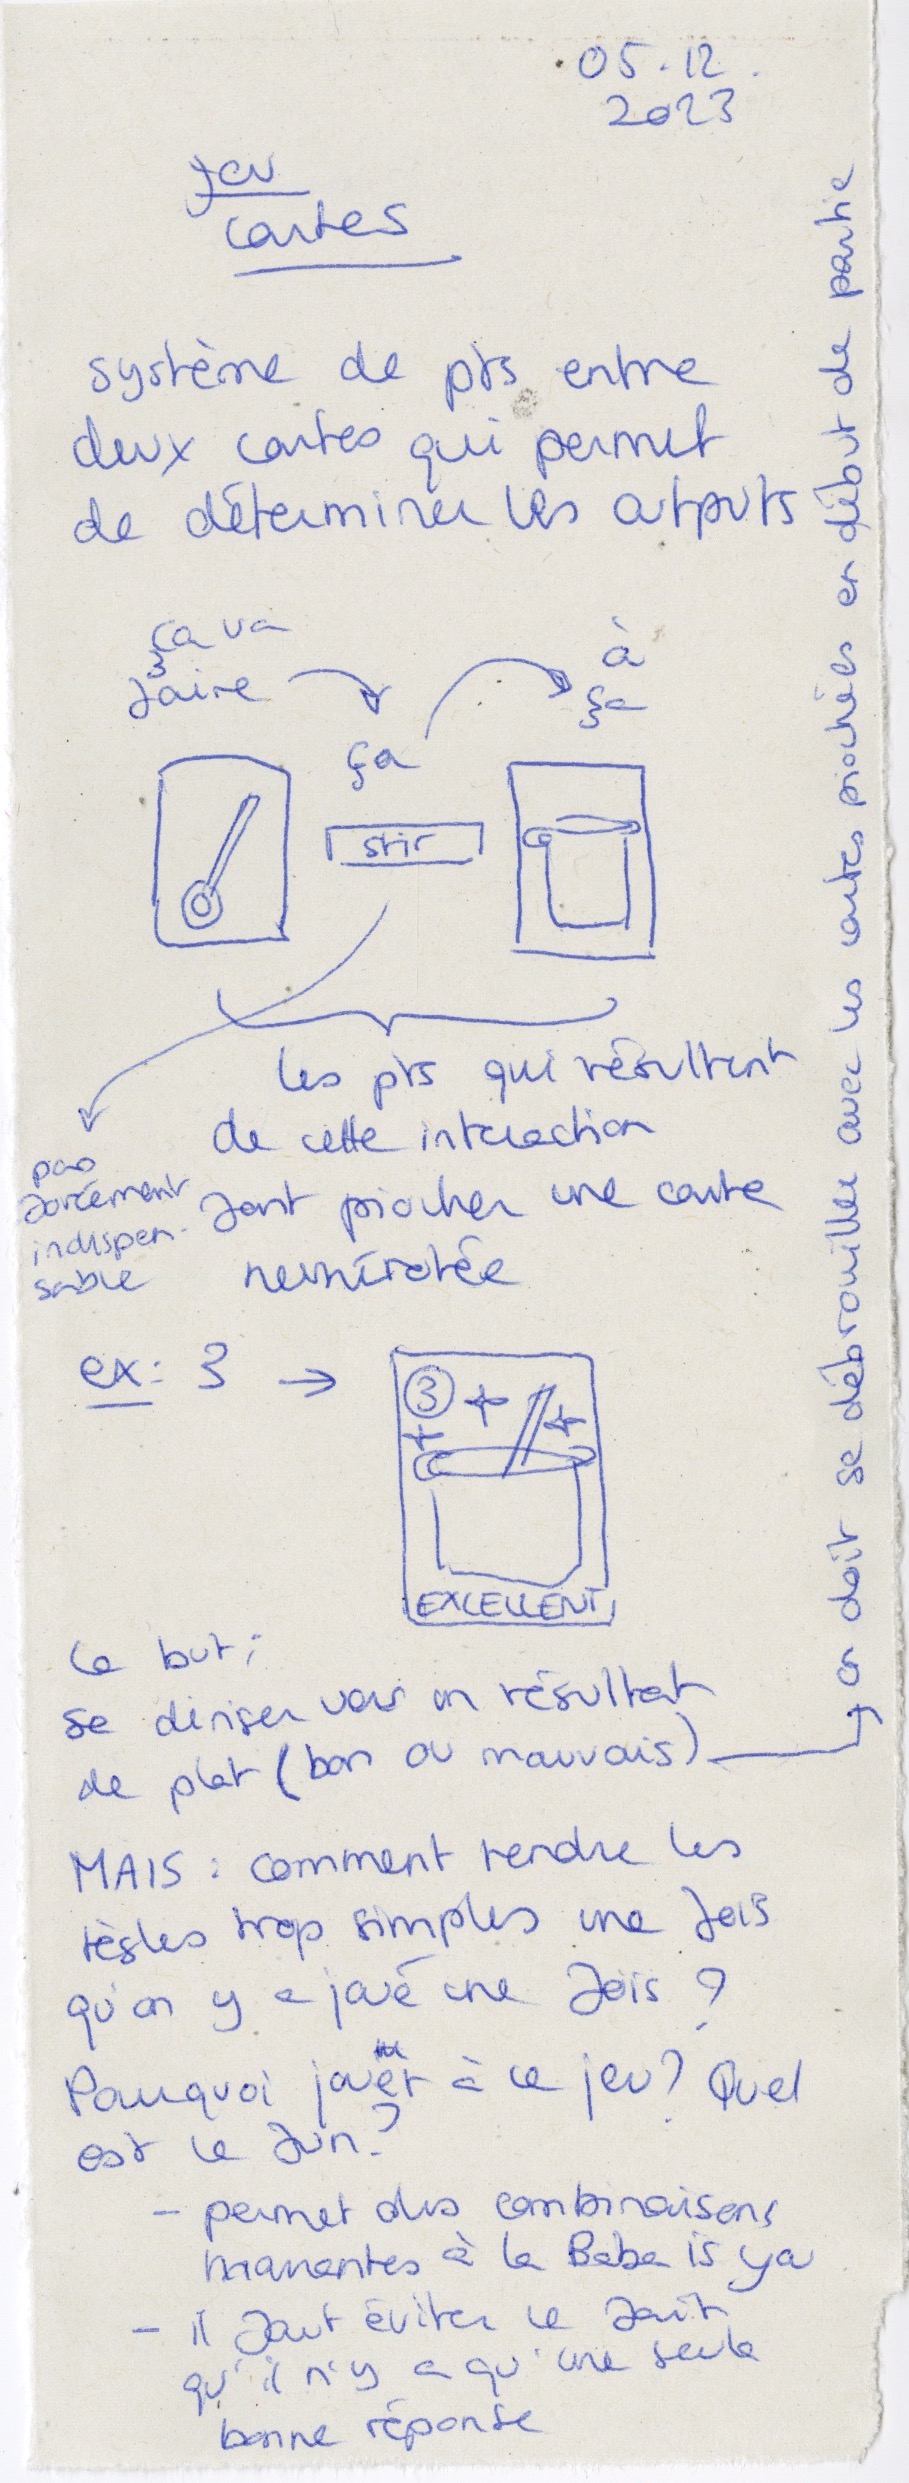 05.12.
2023
Jeu
cartes
système de pts entre
deux cartes qui permet
de déterminer les outputs
ça va
faire
ça
à
ça
stir
les pts qui résultent
de cette interaction
font piocher une carte
numérotée
pas
forcément
indispen-
sable
ex: 3 →
3
EXCELLENT
Le but :
se diriser vers un résultat
de plat (bon ou mauvais)
on doit se débrouiller avec les cartes piochées en début de partie
MAIS : comment rendre les
règles trop simples une fois
qu'on y a joué une fois ?
Pourquoi jouer à ce jeu? Quel
est le fun?
- permet des combinaisons
marrantes à la Baba is you
- il faut éviter le fait
qu'il n'y a qu'une seule
bonne réponse